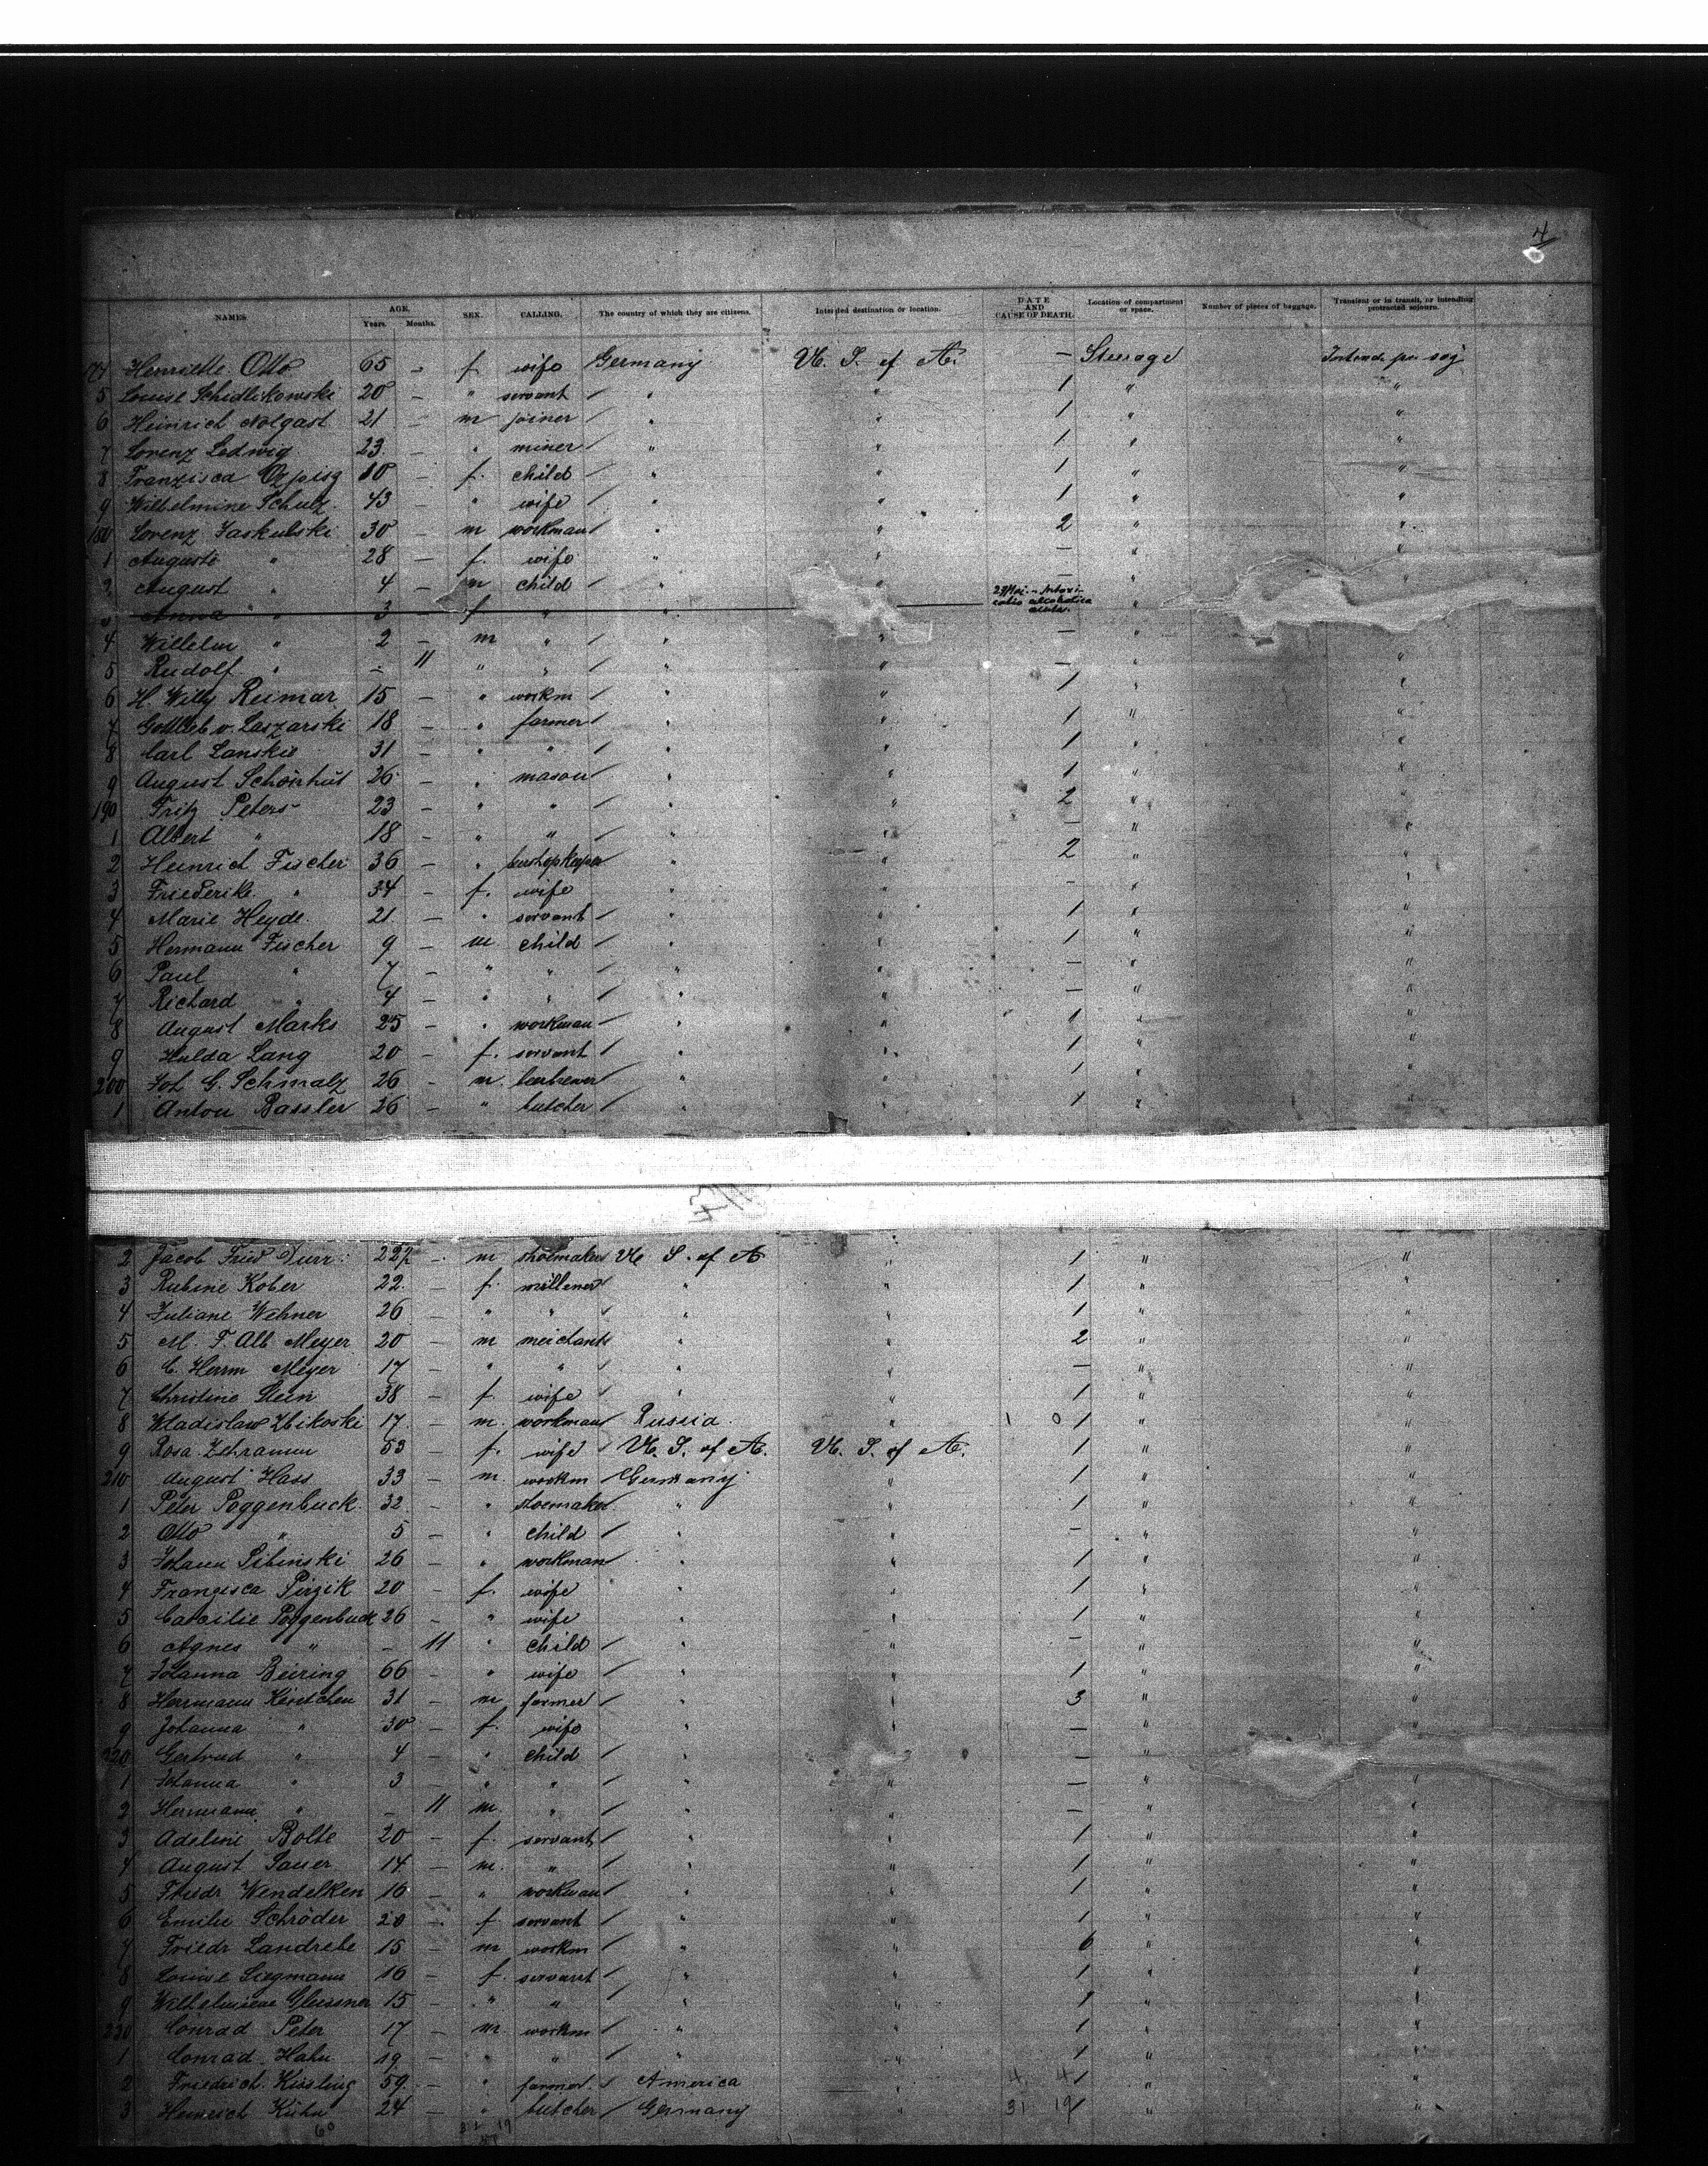 4
NAMES. AGE. Years. Months. SEX. CALLING. The country of which they are citizens. Intended destination or location. DATE AND CAUSE OF DEATH. Location of compartment or space. Number of pieces of baggage. Transient or in transit, or intending protracted sojourn.
174 Henriette Otto 65 - f wife Germany U. S. of A. - Steerage
5 Louise Schidlikowski 20 - " servant / " " 1 " "
6 Heinrich Nolgast 21 - m joiner / " " 1 " "
7 Lorenz Ledwig 23 - " miner / " " 1 " "
8 Franzisca 10 - f. child / " " 1 " "
9 Wilhelmine Schulz 43 - " wife / " " 1 " "
180 Lorenz Jaskulski 30 - m workman / " " 2 " "
1 Auguste " 28 - f. wife " " - " "
2 August " 4 - m child / " " - " "
3 Anna " 3 - f " " 29/Mai. Intoxicatio alcoholica acuta. "
4 Wilhelm " 2 - m " / " - " "
5 Rudolf " - 11 " " / " " - " "
6 H. Willy Reimar 15 - " workm / " " 1 " "
7 Gottlieb v. Laszarski 18 - " farmer / " " 1 " "
8 Carl Lanskie 31 - " " / " " 1 " "
9 August Schönhut 26 - " mason / " " 1 " "
190 Fritz Peters 23 - " " / " " 2 " "
1 Albert " 18 - " " / " " - " "
2 Heinrich Fischer 36 - " " " 2 " "
3 Friederike " 34 - f. wife " " - " "
4 Marie Heyde 21 - " servant / " " 1 " "
5 Hermann Fischer 9 - m child / " " 1 " "
6 Paul " 7 - " " / " " - " "
7 Richard " 4 - " " / " " - " "
8 August Marks 25 - " workman / " " 1 " "
9 Hulda Lang 20 - f. servant / " " 1 " "
200 Joh G. Schmalz 26 - m. " " 1 " "
1 Anton Bassler 26 - " butcher / " " 1 "
2 Jacob Fried Durr 22 - m shoemaker U. S. of A " 1 " "
3 Rubine Kober 22 - f. milliner / " " 1 " "
4 Juliane Wehner 26 - " " / " " 1 " "
5 M. F. Alb Meyer 20 - m merchants " " 2 " "
6 C. Herrm Meyer 17 - " " / " " - " "
7 Christine Stein 38 - f. wife / " " 1 " "
8 Wladislaw Zbikoski 17 - m. workman Russia " 1 0 1 " "
9 Rosa Zehramm 53 - f. wife / U. S. of A. U. S. of A. 1 " "
210 August Hass 33 - m. workm Germany " 1 " "
1 Peter Poggenbuck 32 - " shoemaker " " 1 " "
2 Otto " 5 - " child / " " - " "
3 Johann Sibinski 26 - " workman / " " 1 " "
4 Francisca Pirzik 20 - f. wife " " 1 " "
5 Caecilie Poggenbuck 26 - " wife " " 1 " "
6 Agnes " - 11 " child / " " - " "
7 Johanna Beiring 66 - " wife / " " 1 " "
8 Herrmann 31 - m farmer / " " 3 " "
9 Johanna " 30 - f. wife " " - " "
220 Gertrud " 4 - " child / " " - " "
1 Johanna " 3 - " " / " " - " "
2 Hermann " - 11 m. " / " " - " "
3 Adeline Bolte 20 - f. servant / " " 1 " "
4 August Sauer 14 - m. " / " " 1 " "
5 Friedr Wendelken 16 - " workman " " 1 " "
6 Emilie Schröder 20 - f servant / " " 1 " "
7 Friedr Landrebe 15 - m workm / " " 6 " "
8 Louise Siegmann 16 - f. servant / " " 1 " "
9 Wilhelmine Gleissner 15 - " " / " " 1 " "
230 Conrad Peter 17 - m. workm / " " 1 " "
1 Conrad Hahn 19 - " " / " " 1 " "
2 Friedrich Kissling 59 - " farmer America " 4 4 1 " "
3 Heinrich Kühn 24 - " butcher / Germany " 31 19 1 " "
60